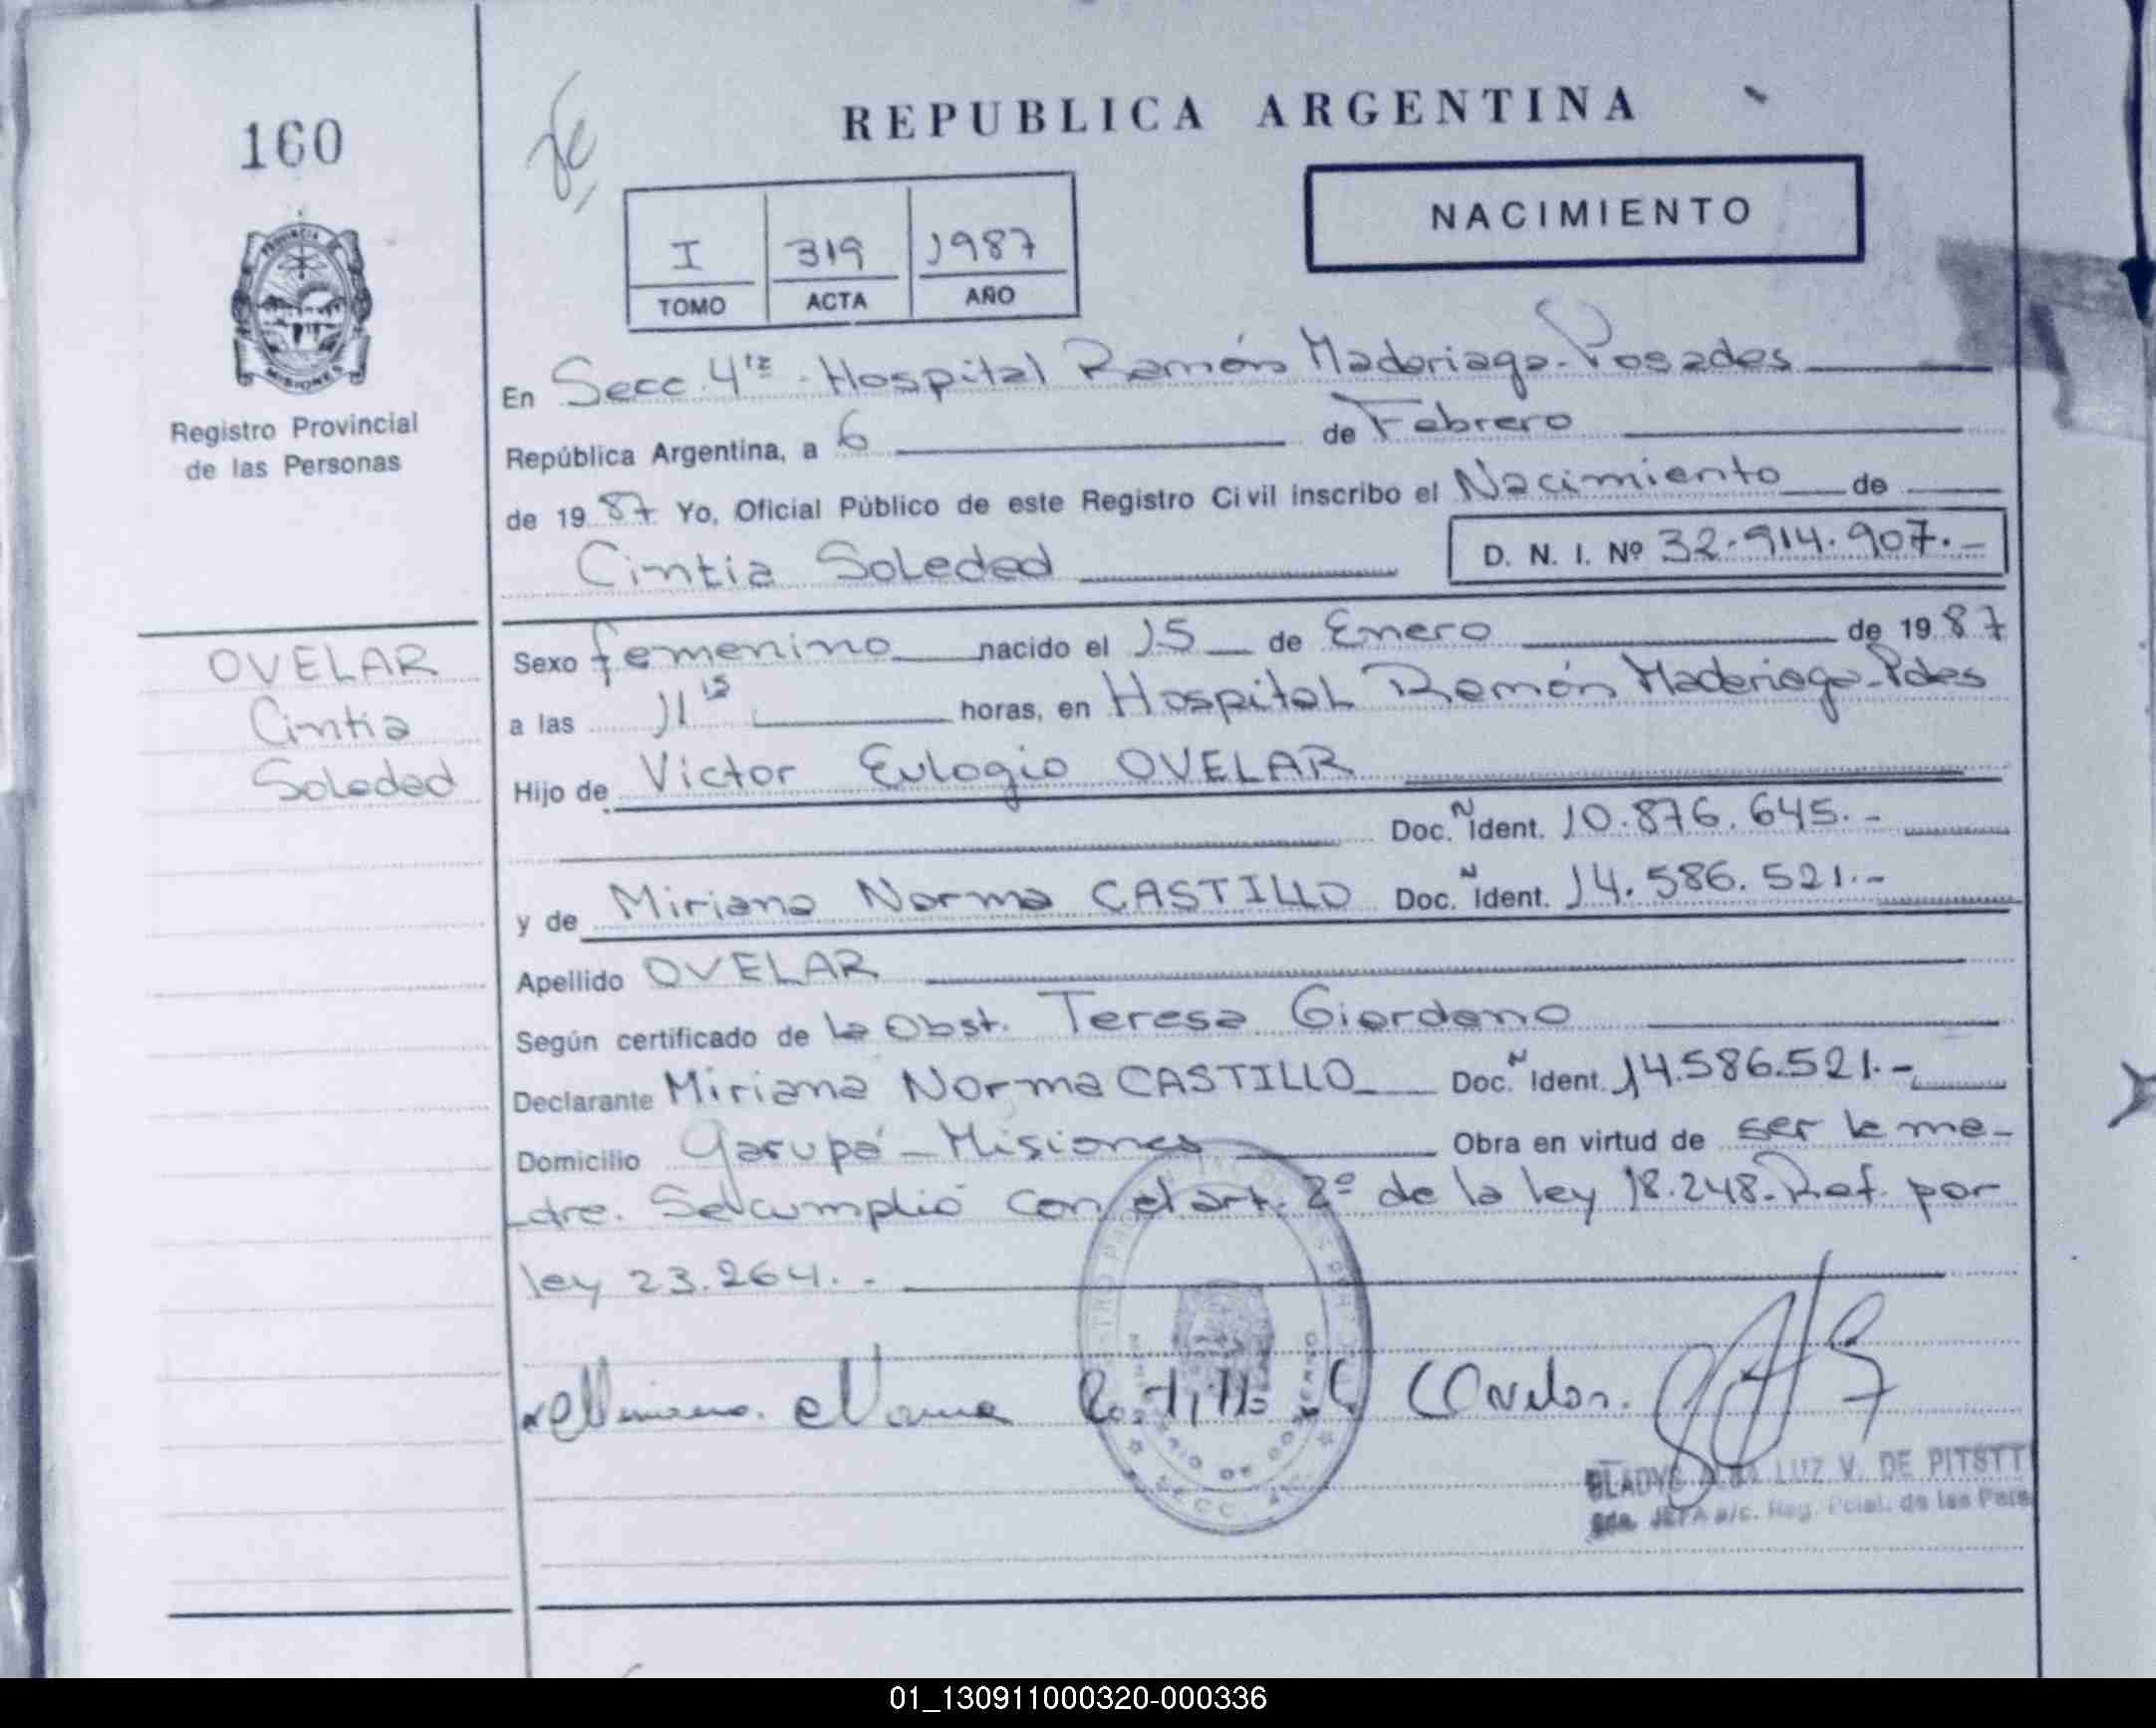 160
REPUBLICA ARGENTINA
NACIMIENTO
I 319 1987
TOMO ACTA AÑO
PROVINCIA
MISIONES
Registro Provincial
de las Personas
En Secc. 4ta - Hospital Ramón Madariaga - Posadas
República Argentina, a 6 de Febrero
de 1987 Yo, Oficial Público de este Registro Civil inscribo el Nacimiento de
Cintia Soledad D. N. I. Nº 32.914.907.-
OVELAR
Cintia
Soledad
Sexo femenino nacido el 15 de Enero de 1987
a las 11 15 horas, en Hospital Ramón Madariaga - Pdas
Hijo de Victor Eulogio OVELAR
Doc. N Ident. 10.876.645.-
y de Miriana Norma CASTILLO Doc. N Ident. 14.586.521.-
Apellido OVELAR
Según certificado de la Obst. Teresa Giordano
Declarante Miriana Norma CASTILLO Doc. N Ident. 14.586.521.-
Domicilio Garupá - Misiones Obra en virtud de ser la ma-
-dre. Se cumplió con el art. 2º de la ley 18.248. Ref. por
ley 23.264. -
Miriana Norma Castillo C Ovelar.
GLADYS ALBA LUZ V. DE
JEFA a/c. Reg. Pcial. de las Pers
01_130911000320-000336